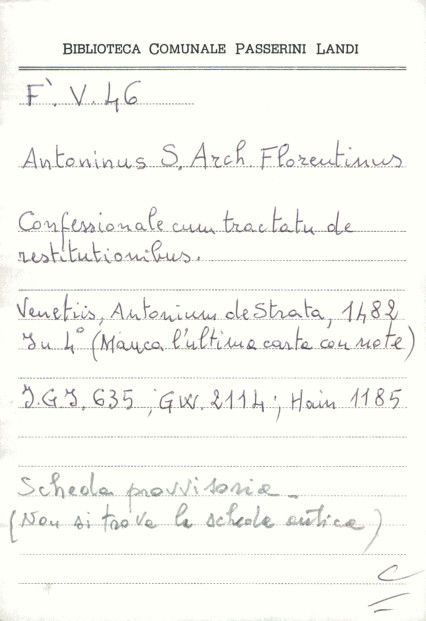 BIBLIOTECA COMUNALE PASSERINI LANDI
F`. V. 46
Antoninus S. Arch. Florentinus
Confessionale cum tractatu de
restitutionibus.
Venetiis, Antonium de Strata, 1482
In 4° (Manca l'ultima carta con note)
I.G.I. 635; GW. 2114; Hain 1185
Scheda provvisoria_
(Non si trova la scheda antica)